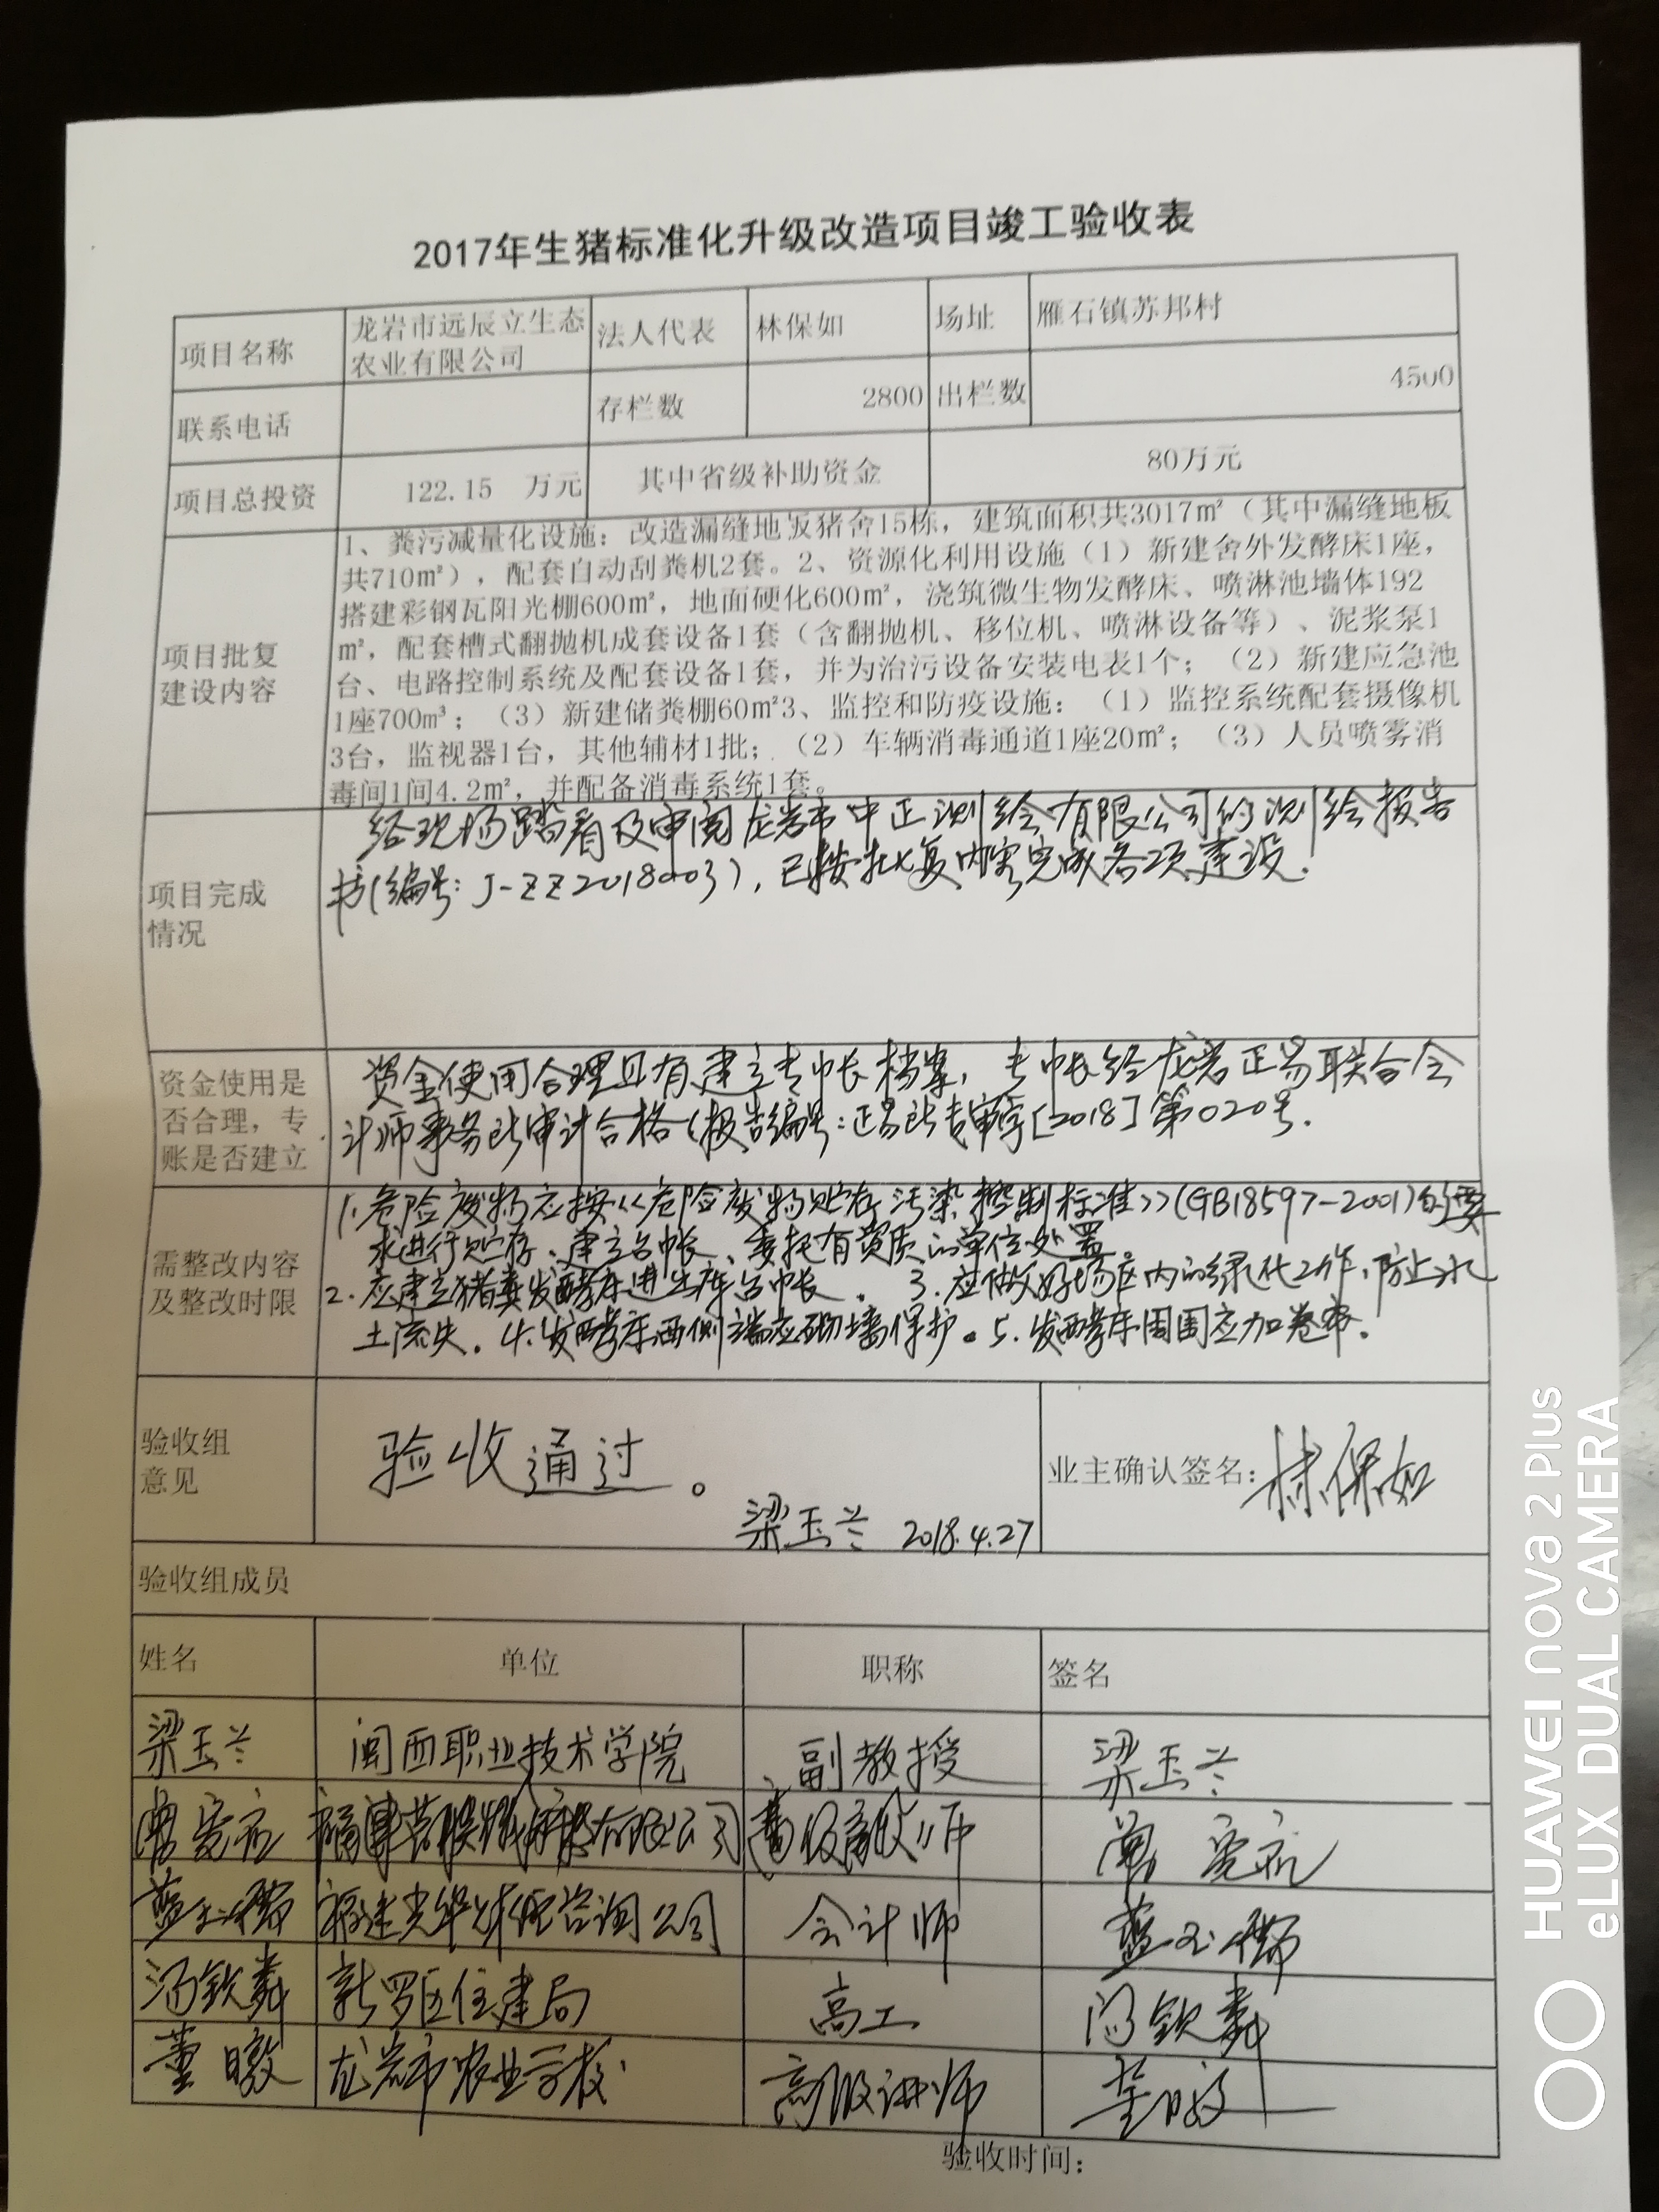 2017年生猪标准化升级改造项目竣工验收表
项目名称 龙岩市远辰立生态农业有限公司 法人代表 林保如 场址 雁石镇苏邦村
联系电话 存栏数 2800 出栏数 4500
项目总投资 122.15 万元 其中省级补助资金 80万元
项目批复建设内容
1、粪污减量化设施：改造漏缝地板猪舍15栋，建筑面积共3017m²（其中漏缝地板
共710m²），配套自动刮粪机2套。2、资源化利用设施（1）新建舍外发酵床1座，
搭建彩钢瓦阳光棚600m²，地面硬化600m²，浇筑微生物发酵床、喷淋池墙体192
m²，配套槽式翻抛机成套设备1套（含翻抛机、移位机、喷淋设备等）、泥浆泵1
台、电路控制系统及配套设备1套，并为治污设备安装电表1个；（2）新建应急池
1座700m³；（3）新建储粪棚60m²3、监控和防疫设施：（1）监控系统配套摄像机
3台，监视器1台，其他辅材1批；（2）车辆消毒通道1座20m²；（3）人员喷雾消
毒间1间4.2m²，并配备消毒系统1套。
项目完成情况
经现场踏看及审阅龙岩市中正测绘有限公司的测绘报告
书(编号：J-ZZ2018003)，已按批复内容完成各项建设.
资金使用是否合理，专账是否建立
资金使用合理且有建立专帐档案，专帐经龙岩正易联合会
计师事务所审计合格(报告编号：正易所专审字[2018]第020号.
需整改内容及整改时限
1.危险废物应按《危险废物贮存污染控制标准》(GB18597-2001)的要
求进行贮存、建立台帐、委托有资质的单位处置
2.应建立猪粪发酵床进出库台帐. 3.应做好场区内的绿化工作,防止水
土流失。4.发酵床两侧端应砌墙保护。5.发酵床周围应加卷帘.
验收组意见 验收通过。
梁玉兰 2018.4.27
业主确认签名：林保如
验收组成员
姓名 单位 职称 签名
梁玉兰 闽西职业技术学院 副教授 梁玉兰
有限公司
福建 咨询公司 会计师
新罗区住建局 高工
龙岩市农业学校 高级讲师
验收时间：
HUAWEI nova 2 Plus
eLUX DUAL CAMERA